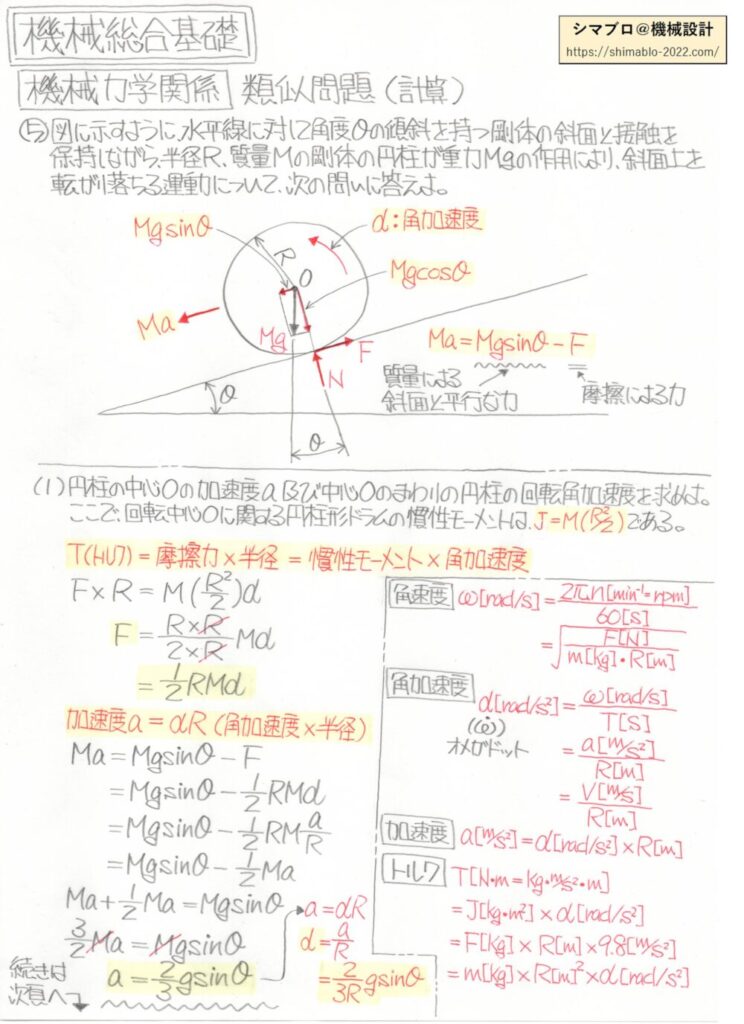 機械総合基礎
シマブロ@機械設計
https://shimablo-2022.com/
機械力学関係 類似問題(計算)
⑤図に示すように、水平線に対して角度θの傾斜を持つ剛体の斜面と接触を
保持しながら、半径R、質量Mの剛体の円柱が重力Mgの作用により、斜面上を
転がり落ちる運動について、次の問いに答えよ。
Mgsinθ
α:角加速度
R
O
Mgcosθ
Ma
Mg
F
N
Ma=Mgsinθ-F
質量による
斜面と平行な力
摩擦による力
θ
θ
(1)円柱の中心Oの加速度a及び中心Oのまわりの円柱の回転角加速度を求めよ。
ここで、回転中心Oに関する円柱形ドラムの慣性モーメントは、J=M(R²/2)である。
T(トルク)=摩擦力×半径=慣性モーメント×角加速度
F×R=M(R²/2)α
F=R×R/2×R Mα
=1/2RMα
加速度a=αR(角加速度×半径)
Ma=Mgsinθ-F
=Mgsinθ-1/2RMα
=Mgsinθ-1/2RM a/R
=Mgsinθ-1/2Ma
Ma+1/2Ma=Mgsinθ
3/2Ma=Mgsinθ
a=2/3gsinθ
続きは
次頁へ
a=αR
α=a/R
=2/3R gsinθ
角速度 ω[rad/s]=2πn[min⁻¹=rpm]/60[s]
=√F[N]/m[kg]・R[m]
角加速度
α[rad/s²]=ω[rad/s]/T[s]
(ω̇)
オメガドット
=a[m/s²]/R[m]
=V[m/s]/R[m]
加速度 a[m/s²]=α[rad/s²]×R[m]
トルク T[N・m=kg・m/s²・m]
=J[kg・m²]×α[rad/s²]
=F[kg]×R[m]×9.8[m/s²]
=m[kg]×R[m]²×α[rad/s²]